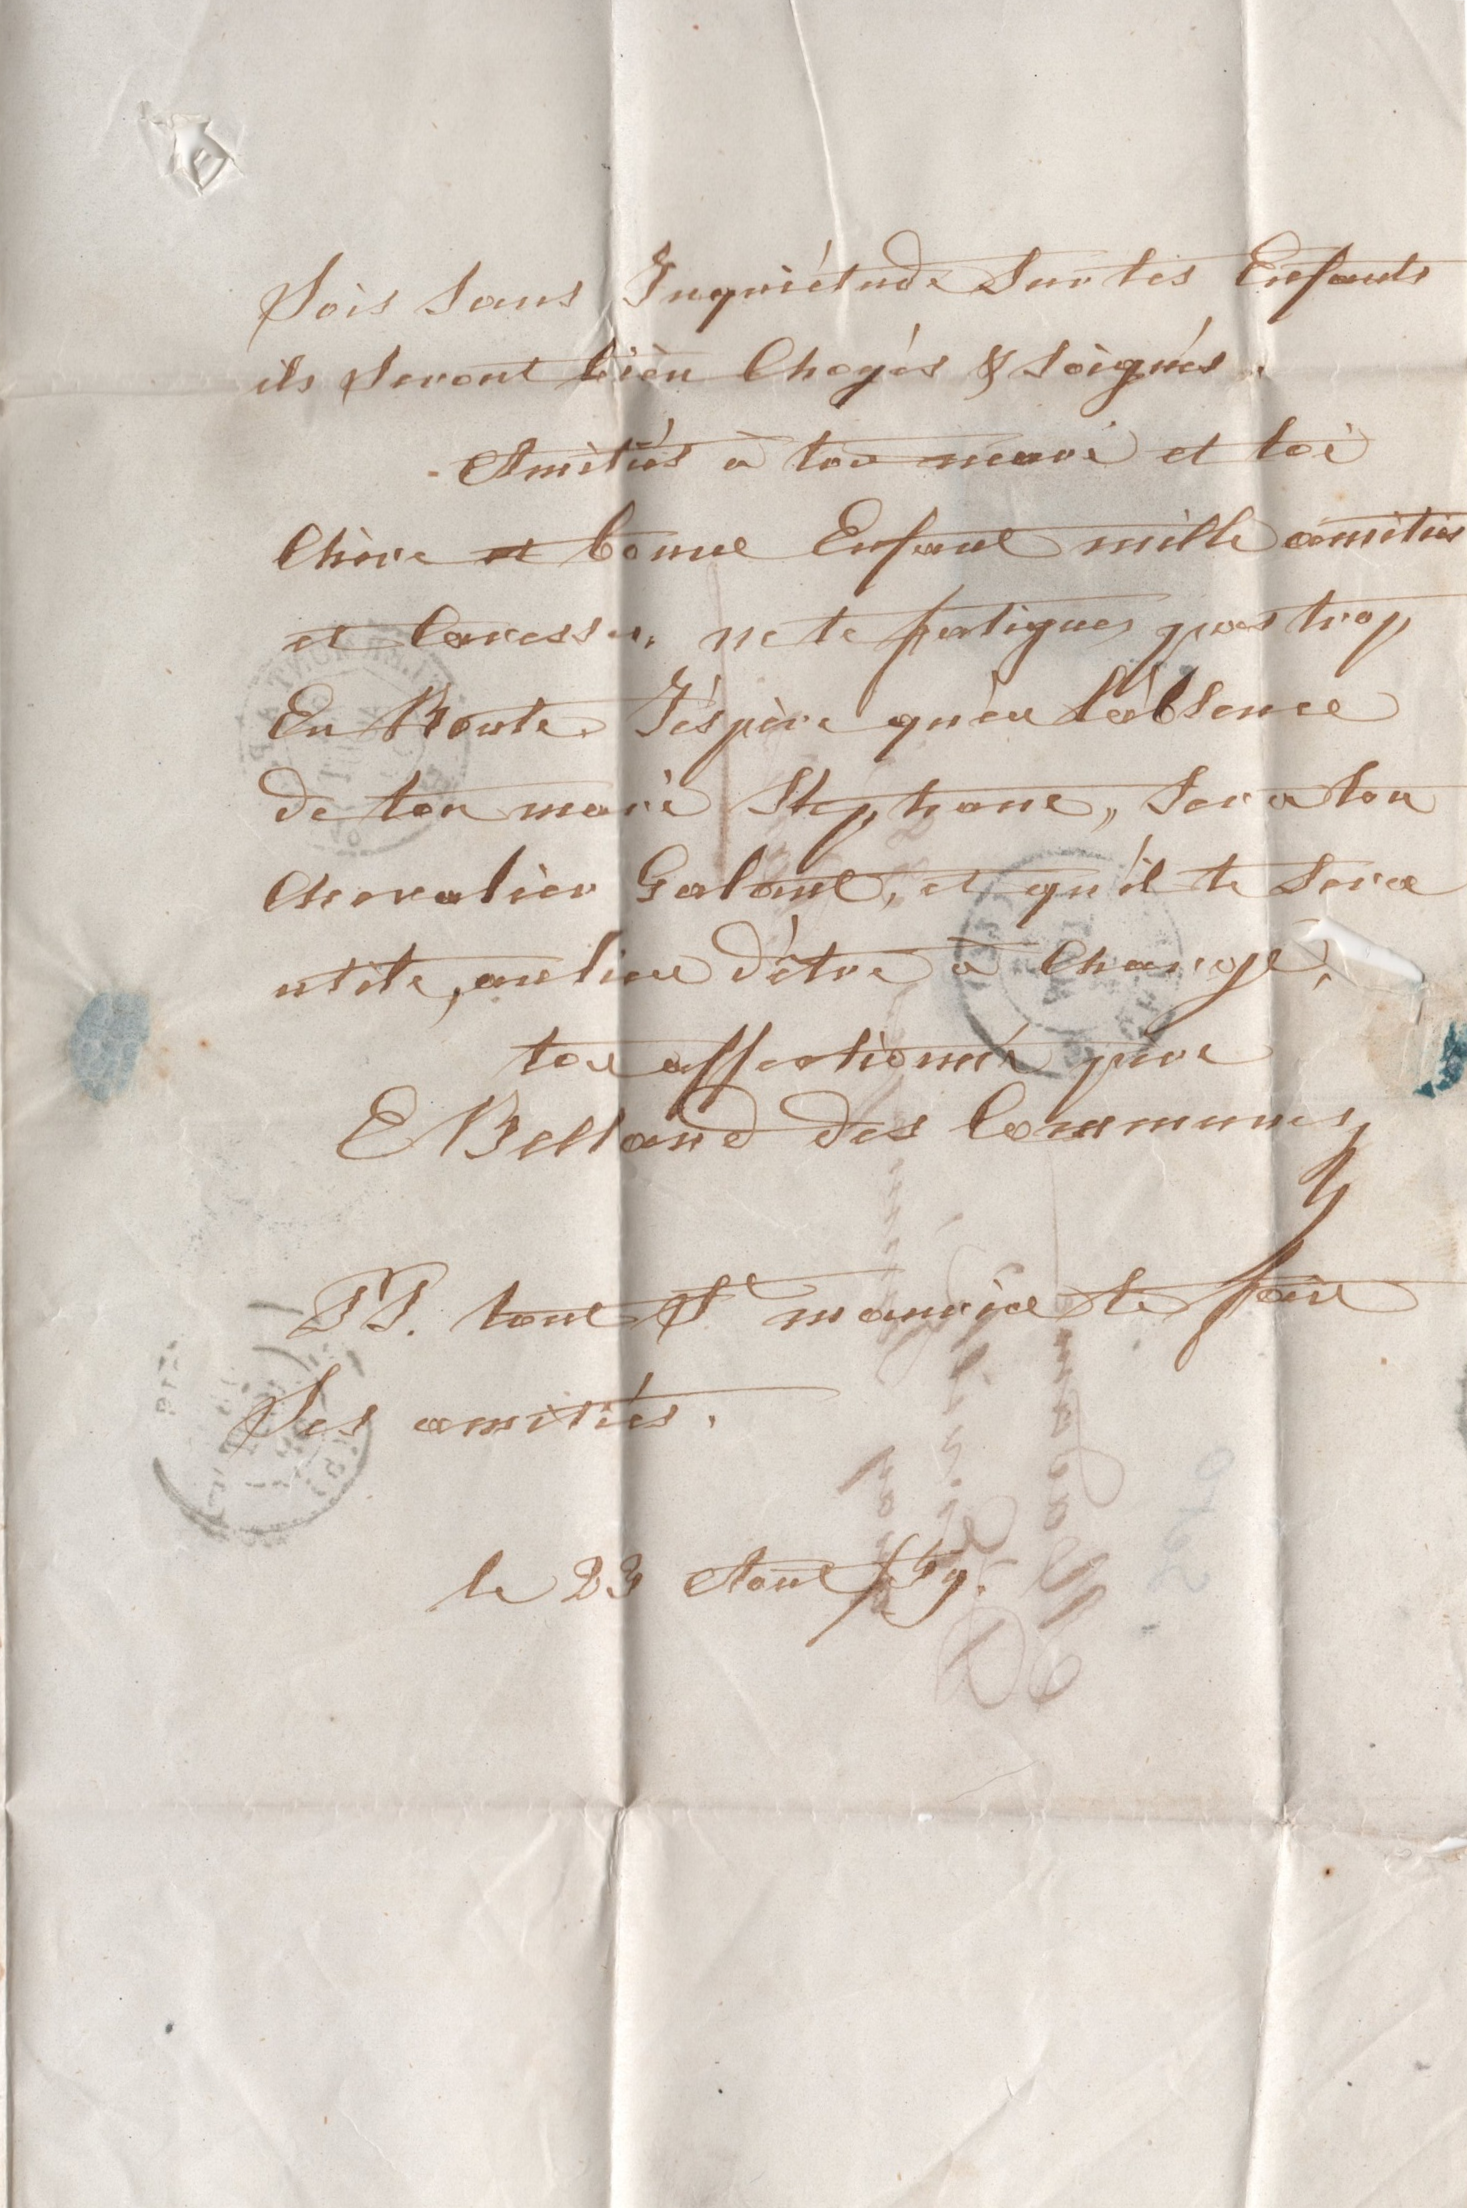 Sois sans Inquiétude sur tes Enfants
ils seront bien Choyés & soignés.
Amitiés à ton mari et toi
Chère et bonne Enfant mille amitiés
et Caresses, ne te fatigues pas trop
En Route. J'éspère qu'en l'absence
de ton mari Stephane, sera ton
Chevalier Galant, et qu'il te sera
utile, au lieu d'être à Charge,
ton affectionné père
E Belland des Communes
PS. tout St maurice te fait
ses amitiés.
le 23 Aout